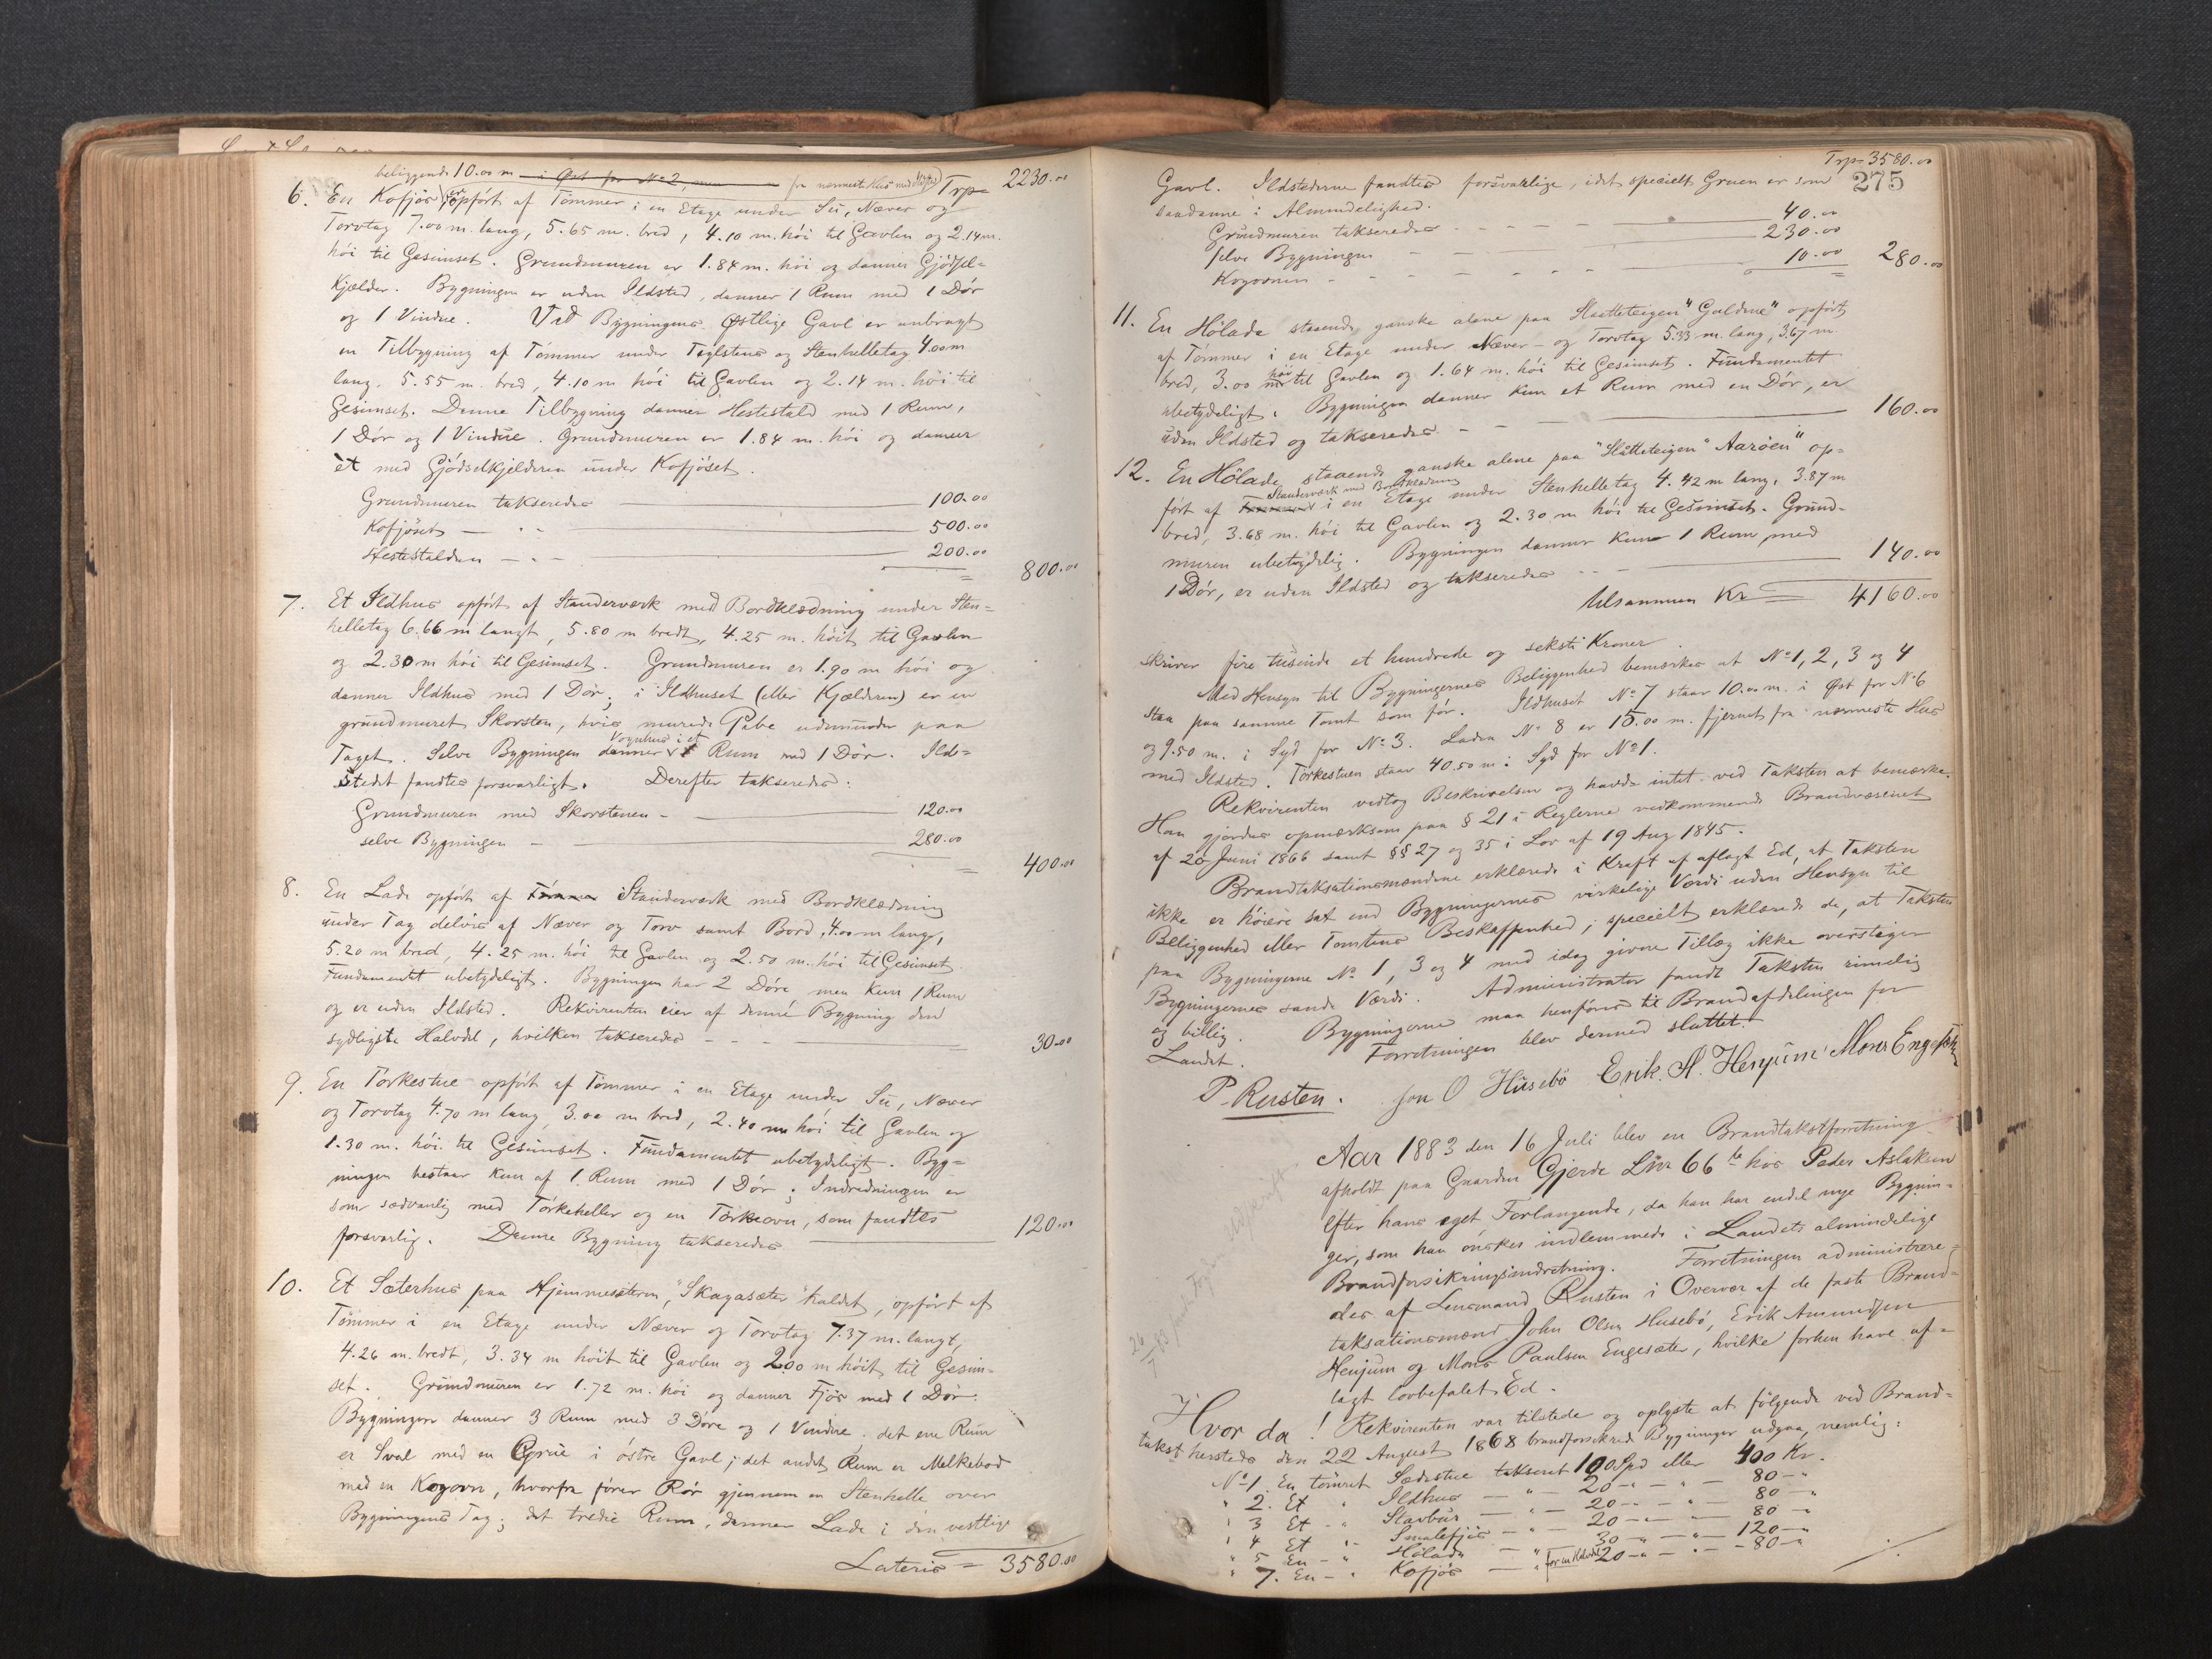 beliggende 10.00 m i Øst for No 2, fra nærmeste Hus med Ildsted Trp 2230.00
6. En Kofjøs er opført af Tømmer i en Etage under Su, Næver og
Torvtag 7.00 m. lang, 5.65 m. bred, 4.10 m. høi til Gavlen og 2.14 m.
høi til Gesimset. Grundmuren er 1.84 m. høi og danner Gjødsel-
kjælder. Bygningen er uden Ildsted, danner 1 Rum med 1 Dør
og 1 Vindue. Ved Bygningens østlige Gavl er anbragt
en Tilbygning af Tømmer under Teglstens og Stenhelletag 4.00 m
lang, 5.55 m. bred, 4.10 m høi til Gavlen og 2.14 m. høi til
Gesimset. Denne Tilbygning danner Hestestald med 1 Rum,
1 Dør og 1 Vindue. Grundmuren er 1.84 m. høi og danner
èt med Gjødselkjelderen under Kofjøset.
Grundmuren takseredes 100.00
Kofjøset 500.00
Hestestalden 200.00
800.00
7. Et Ildhus opført af Standerværk med Bordklædning under Sten-
helletag 6.66 m langt, 5.80 m bredt, 4.25 m. høit til Gavlen
og 2.30 m høi til Gesimset. Grundmuren er 1.90 m høi og
danner Ildhus med 1 Dør; i Ildhuset (eller Kjældren) er en
grundmuret Skorsten, hvis murede Pibe udmunder paa
Taget. Selve Bygningen danner Vognhus i et Rum med 1 Dør. Ild-
stedet fandtes forsvarligt. Derefter takseredes:
Grundmuren med Skorstenen 120.00
selve Bygningen 280.00
400.00
8. En Lade opført af Tømmer Standerværk med Bordklædning
under Tag delvis af Næver og Torv samt Bord, 4.00 m lang,
5.20 m bred, 4.25 m. høi til Gavlen og 2.50 m. høi til Gesimset.
Fundamentet ubetydeligt. Bygningen har 2 Døre men kun 1 Rum
og er uden Ildsted. Rekvirenten eier af denne Bygning den
sydligste Halvdel, hvilken takseredes 30.00
9. En Tørkestue opført af Tømmer i en Etage under Su, Næver
og Torvtag 4.70 m lang, 3.00 m bred, 2.40 m høi til Gavlen og
1.30 m. høi til Gesimset. Fundamentet ubetydeligt. Byg-
ningen bestaar kun af 1 Rum med 1 Dør; Indredningen er
som sædvanlig med Tørkeheller og en Tørkeovn, som fandtes
forsvarlig. Denne Bygning takseredes 120.00
10. Et Sæterhus paa Hjemmesæteren, "Skagasæter" kaldet, opført af
Tømmer i en Etage under Næver og Torvtag 7.37 m. langt,
4.26 m. bredt, 3.34 m høit til Gavlen og 2.00 m høit til Gesim-
set. Grundmuren er 1.72 m. høi og danner Fjøs med 1 Dør.
Bygningen danner 3 Rum med 3 Døre og 1 Vindue. det ene Rum
er Sval med en Grue i østre Gavl; det andet Rum er Melkebod
med en Kogovn, hvorfra fører Rør gjennem en Stenhelle over
Bygningens Tag; det tredie Rum, danner Lade i den vestlige
Lateris = 3580.00
Trp 3580.00
275
Gavl. Ildstederne fandtes forsvarlige, idet specielt Gruen er som
saadanne i Almindelighed.
Grundmuren takseredes 40.00
selve Bygningen 230.00
Kogovnen 10.00 280.00
11. En Hølade staaende ganske alene paa Slatteteigen "Galdene" opført
af Tømmer i en Etage under Næver- og Torvtag 5.33 m. lang, 3.67 m
bred, 3.00 m høi til Gavlen og 1.64 m. høi til Gesimset. Fundamentet
ubetydeligt. Bygningen danner kun et Rum med en Dør, er
uden Ildsted og takseredes 160.00
12. En Hølade, staaende ganske alene paa "Slatteteigen" Aarøen" op-
ført af Tømmer Standerværk med Bordklædning i en Etage under Stenhelletag 4.42 m lang, 3.87 m
bred, 3.68 m. høi til Gavlen og 2.30 m høi til Gesimset. Grund-
muren ubetydelig. Bygningen danner kun 1 Rum med
1 Dør, er uden Ildsted og takseredes 140.00
Tilsammen Kr 4160.00
skriver fire tusinde et hundrede og seksti Kroner.
Med Hensyn til Bygningernes Beliggenhed bemærkes at No 1, 2, 3 og 4
staa paa samme Tomt som før. Ildhuset No 7 staar 10.00 m. i Øst for No 6
og 9.50 m. i Syd for No 3. Laden No 8 er 15.00 m. fjernet fra nærmeste Hus
med Ildsted. Tørkestuen staar 40.50 m i Syd for No 1.
Rekvirenten vedtog Beskrivelsen og havde intet ved Taksten at bemærke.
Han gjordes opmærksom paa § 21 i Reglerne vedkommende Brandvæsenet
af 20 Juni 1866 samt §§ 27 og 35 i Lov af 19 Aug 1845.
Brandtaksationsmændene erklærede i Kraft af aflagt Ed, at Taksten
ikke er høiere sat end Bygningernes virkelige Værdi uden Hensyn til
Beliggenhed eller Tomtens Beskaffenhed; specielt erklærede de, at Taksten
paa Bygningerne No 1, 3 og 4 med idag givne Tillæg ikke overstiger
Bygningernes sande Værdi. Administrator fandt Taksten rimelig
og billig. Bygningerne maa henføres til Brandafdelingen for
Landet. Forretningen blev dermed sluttet.
P. Rusten. Jon O Husebø Erik A. Henjum Mons Engesæter
Aar 1883 den 16 Juli blev en Brandtakstforretning
afholdt paa Gaarden Gjerde Lnr 66 hos Peder Aslaksen
efter hans eget Forlangende, da han har endel nye Bygnin-
ger, som han ønsker indlemmede i Landets almindelige
Brandforsikringsindretning. Forretningen administrere-
des af Lensmand Rusten i Overvær af de faste Brand-
taksationsmænd John Olsen Husebø, Erik Amundsen
Henjum og Mons Paulsen Engesæter, hvilke forhen have af-
lagt lovbefalet Ed.
Hvor da! Rekvirenten var tilstede og oplyste at følgende ved Brand-
takst herstedes den 22 August 1868 brandforsikrede Bygninger udgaa, nemlig:
No 1. En tømret Sædestue takseret 100 Spd eller 400 Kr.
" 2. Et " Ildhus — " — 20 — " — 80 — "
" 3 Et " Stavbur — " — 20 — " — 80 — "
" 4 Et " Smalefjøs — " — 20 — " — 80 — "
" 5 En " Hølade — " — 30 — " — 120 — "
" 7. En " Kofjøs — " for en Halvdel 20 — " — 80 — "